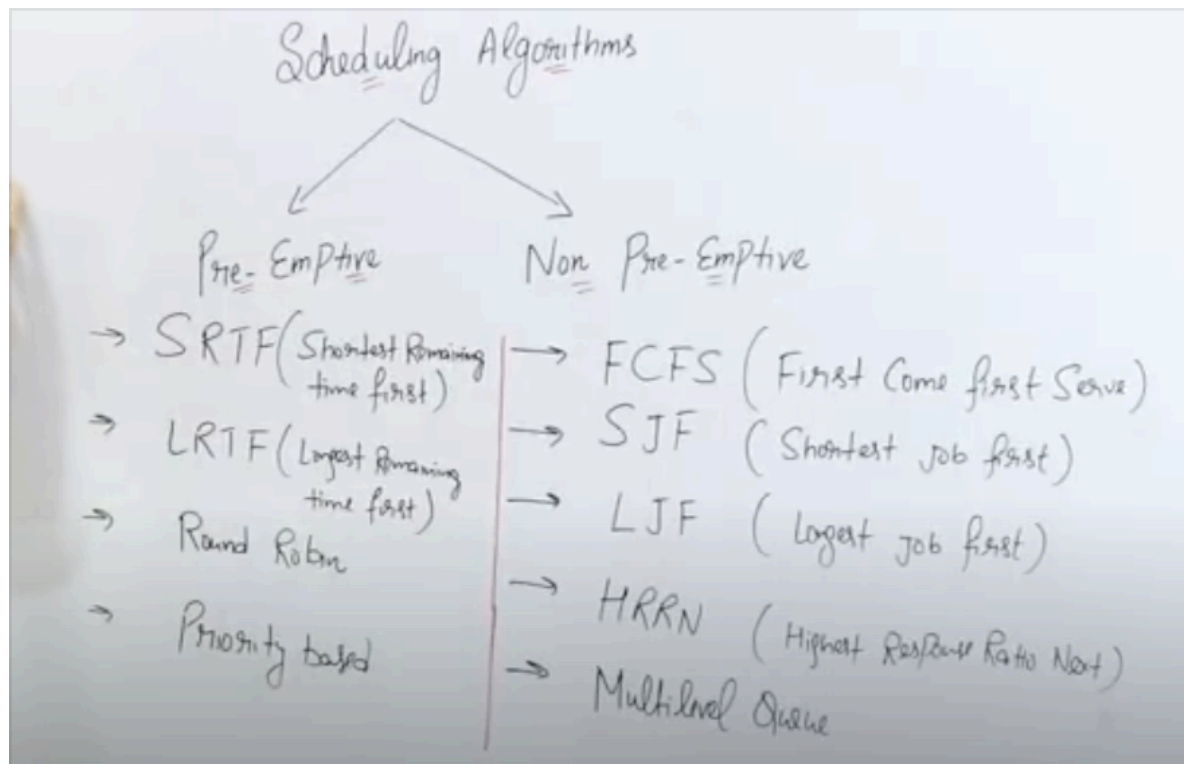 Scheduling Algorithms
Pre-Emptive
→ SRTF (Shortest Remaining
time first)
→ LRTF (Longest Remaining
time first)
→ Round Robin
→ Priority based
Non Pre-Emptive
→ FCFS (First Come first Serve)
→ SJF (Shortest Job first)
→ LJF (Longest Job first)
→ HRRN (Highest Response Ratio Next)
→ Multilevel Queue